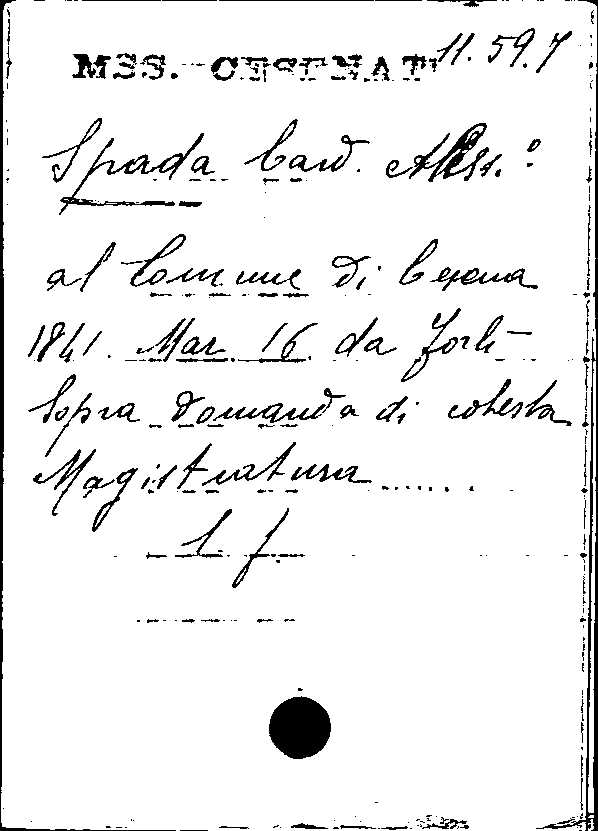 MSS. CESENATI 11.59.7
Spada Card. Aless.º
al Comune di Cesena
1841. Mar. 16 da Forlì
Sopra domanda di cotesta
Magistratura......
l. f.